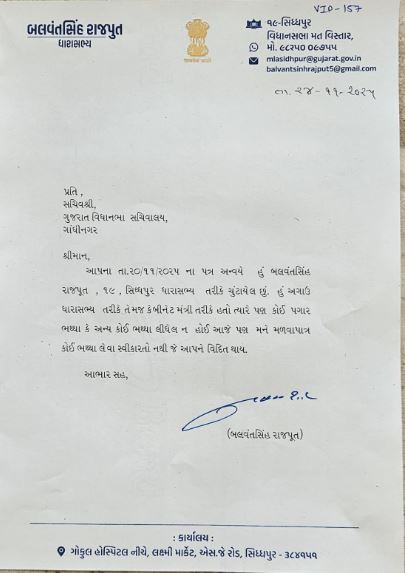 VIP-157
બલવંતસિંહ રાજપુત
ધારાસભ્ય
૧૯-સિધ્ધપુર
વિધાનસભા મત વિસ્તાર,
મો. ૯૮૨૫૦ ૦૯૭૫૫
mlasidhpur@gujarat.gov.in
balvantsinhrajput5@gmail.com
તા. ૨૪-૧૧-૨૦૨૫
પ્રતિ,
સચિવશ્રી,
ગુજરાત વિધાનભા સચિવાલય,
ગાંધીનગર
શ્રીમાન,
આપના તા.૨૦/૧૧/૨૦૨૫ ના પત્ર અન્વયે હું બલવંતસિંહ
રાજપૂત , ૧૯ , સિધ્ધપુર ધારાસભ્ય તરીકે ચુંટાયેલ છું. હું અગાઉ
ધારાસભ્ય તરીકે તેમજ કેબીનેટ મંત્રી તરીકે હતો ત્યારે પણ કોઈ પગાર
ભથ્થા કે અન્ય કોઈ ભથ્થા લીધેલ ન હોઈ આજે પણ મને મળવાપાત્ર
કોઈ ભથ્થા લેવા સ્વીકારતો નથી જે આપને વિદિત થાય.
આભાર સહ,
(બલવંતસિંહ રાજપૂત)
: કાર્યાલય :
ગોકુલ હોસ્પિટલ નીચે, લક્ષ્મી માર્કેટ, એસ.જે રોડ, સિધ્ધપુર - ૩૮૪૧૫૧